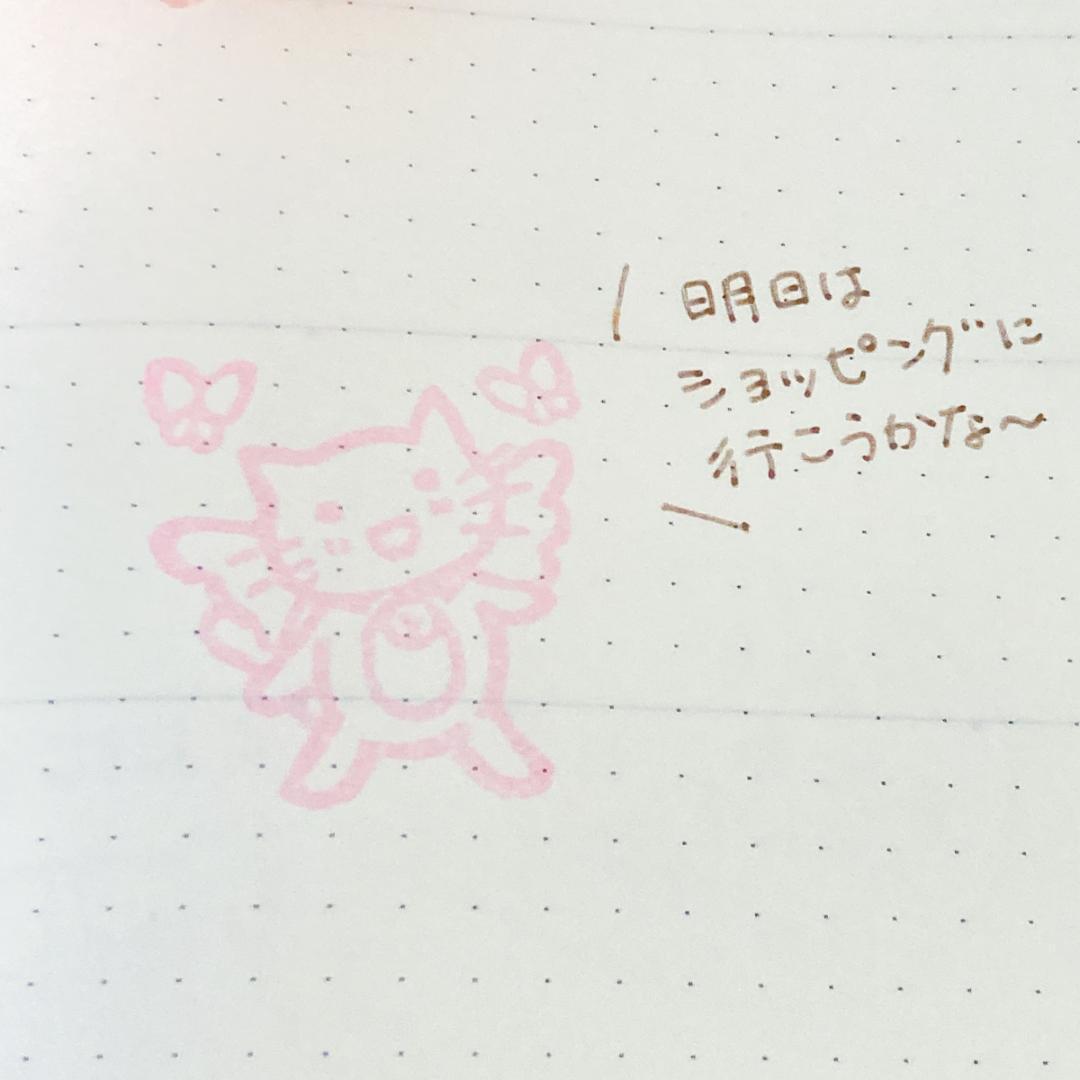 明日は
ショッピングに
行こうかな〜